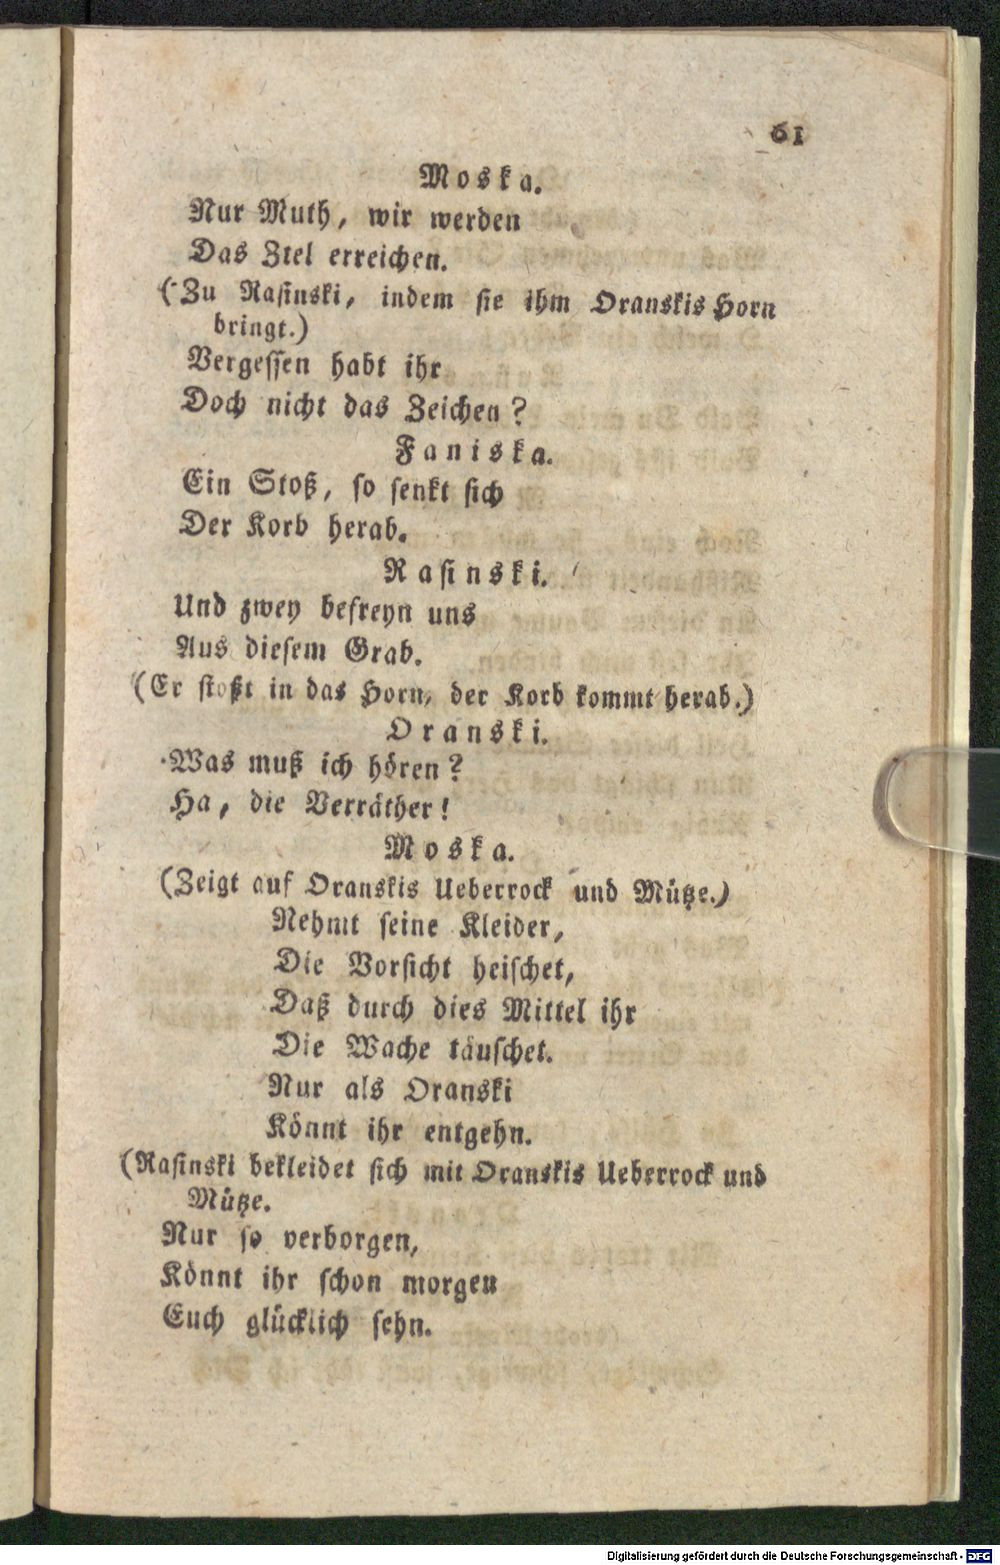 61
Moska.
Nur Muth, wir werden
Das Ziel erreichen.
(Zu Rasinski, indem sie ihm Oranskis Horn
bringt.)
Vergessen habt ihr
Doch nicht das Zeichen?
Faniska.
Ein Stoß, so senkt sich
Der Korb herab.
Rasinski.
Und zwey befreyn uns
Aus diesem Grab.
(Er stoßt in das Horn, der Korb kommt herab.)
Oranski.
Was muß ich hören?
Ha, die Verräther!
Moska.
(Zeigt auf Oranskis Ueberrock und Mütze.)
Nehmt seine Kleider,
Die Vorsicht heischet,
Daß durch dies Mittel ihr
Die Wache täuschet.
Nur als Oranski
Könnt ihr entgehn.
(Rasinski bekleidet sich mit Oranskis Ueberrock und
Mütze.
Nur so verborgen,
Könnt ihr schon morgen
Euch glücklich sehn.
Digitalisierung gefördert durch die Deutsche Forschungsgemeinschaft - DFG